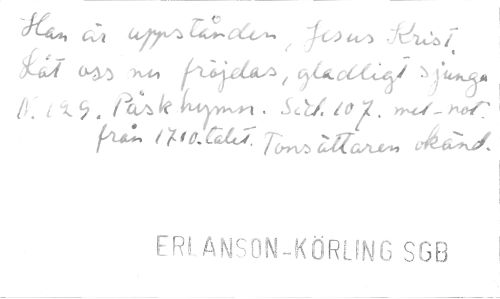 Han är uppstånden, Jesus Krist.
Låt oss nu fröjdas, gladligt sjunga
N. 129. Påskhymn. Söd. 107. mel-not.
från 1710-talet. Tonsättaren okänd.
ERLANSON-KÖRLING SGB